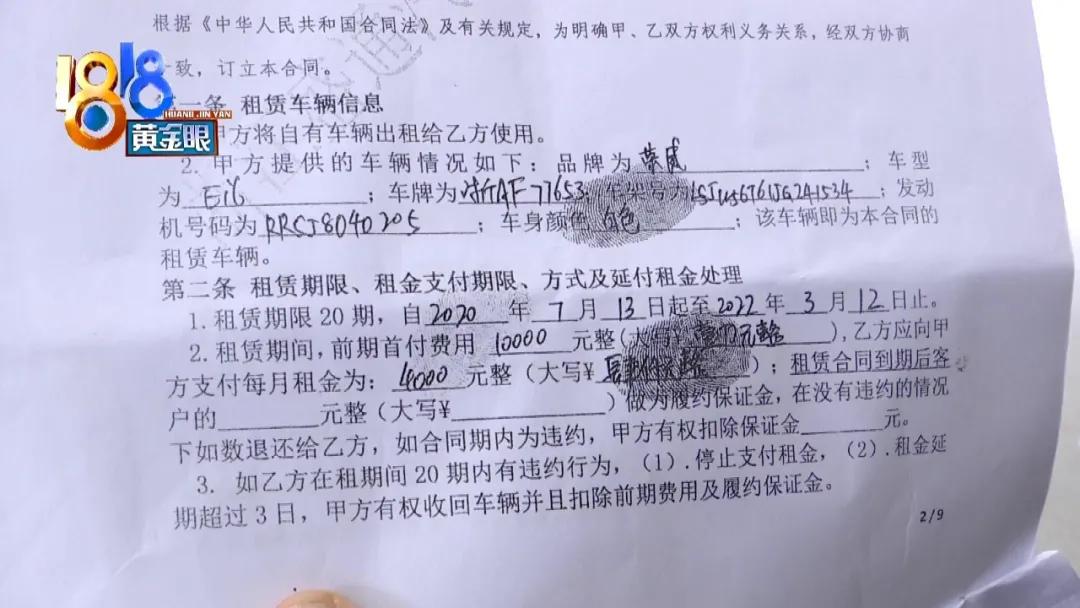 根据《中华人民共和国合同法》及有关规定，为明确甲、乙双方权利义务关系，经双方协商
一致，订立本合同。
1818
HUANG JIN YAN
黄金眼
第一条 租赁车辆信息
甲方将自有车辆出租给乙方使用。
2. 甲方提供的车辆情况如下：品牌为 荣威；车型
为 Ei6；车牌为浙AF77653；车架号为；发动
机号码为RRSJ8040205；车身颜色 白色；该车辆即为本合同的
租赁车辆。
第二条 租赁期限、租金支付期限、方式及延付租金处理
1.租赁期限20期，自 2020 年 7 月 13 日起至2022年 3 月 12 日止。
2.租赁期间，前期首付费用 10000 元整(大写¥ 元整)，乙方应向甲
方支付每月租金为：4000 元整（大写¥）；租赁合同到期后客
户的______元整（大写¥______）做为履约保证金，在没有违约的情况
下如数退还给乙方，如合同期内为违约，甲方有权扣除保证金______元。
3. 如乙方在租期间20期内有违约行为，（1）.停止支付租金，（2）.租金延
期超过3日，甲方有权收回车辆并且扣除前期费用及履约保证金。
2/9